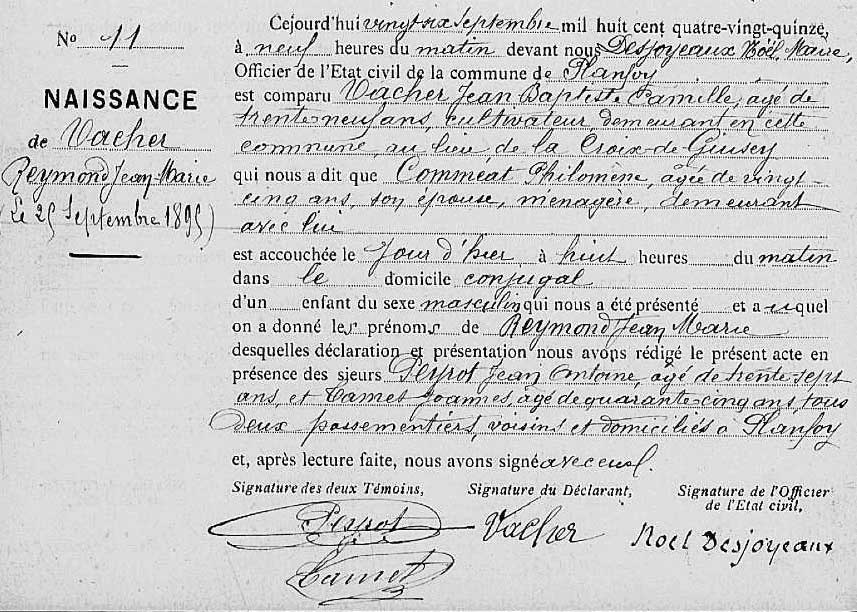 No 11
NAISSANCE
de Vacher
Reymond Jean-Marie
(Le 25 Septembre 1895)
Cejourd'hui vingt six septembre mil huit cent quatre-vingt-quinze,
à neuf heures du matin devant nous Desjoyeaux Noël, Maire,
Officier de l'Etat civil de la commune de Planfoy
est comparu Vacher Jean Baptiste Camille, âgé de
trente-neuf ans, cultivateur demeurant en cette
commune, au lieu de la Croix-de-Guisey
qui nous a dit que Comméat Philomène, âgée de vingt-
cinq ans, son épouse, ménagère, demeurant
avec lui
est accouchée le Jour d'hier à huit heures du matin
dans le domicile conjugal
d'un enfant du sexe masculin qui nous a été présenté et auquel
on a donné les prénoms de Reymond Jean Marie
desquelles déclaration et présentation nous avons rédigé le présent acte en
présence des sieurs Peyrot Jean Antoine, âgé de trente-sept
ans, et Tamet Joannes, âgé de quarante-cinq ans, tous
deux passementiers, voisins et domiciliés à Planfoy
et, après lecture faite, nous avons signé avec eux.
Signature des deux Témoins, Signature du Déclarant, Signature de l'Officier
de l'Etat civil,
Peyrot Vacher Noel Desjoyeaux
Tamet